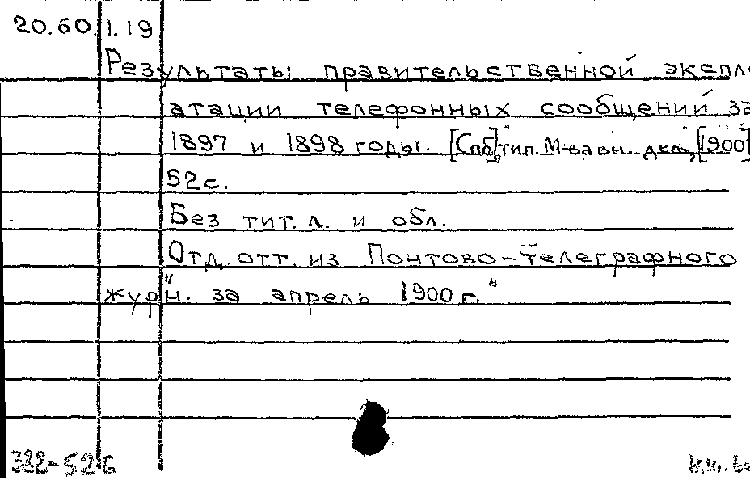 20.60 1.19
Результаты правительственной экспло
атации телефонных сообщений за
1897 и 1898 годы. [Спб], тип. М-ва вн. дел, [900]
52 с.
Без тит. л. и обл.
Отд. отт. из Почтово-телеграфного
журн. за апрель 1900 г."
322-526